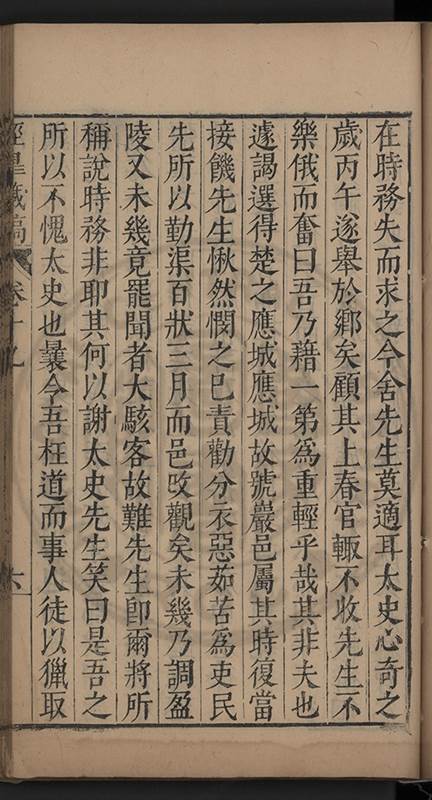 在時務失而求之今舍先生莫適耳太史心奇之
歲丙午遂舉於鄉矣顧其上春官輙不收先生不
樂俄而奮曰吾乃藉一第爲重輕乎哉其非夫也
遽謁選得楚之應城應城故號巖邑屬其時復當
接饑先生愀然憫之已責勸分衣惡茹苦爲吏民
先所以勤渠百狀三月而邑攺觀矣未幾乃調盈
陵又未幾竟罷聞者大駭客故難先生卽爾將所
稱說時務非耶其何以謝太史先生笑曰是吾之
所以不愧太史也曩令吾枉道而事人徒以獵取
涇臯藏稿 卷十九 六